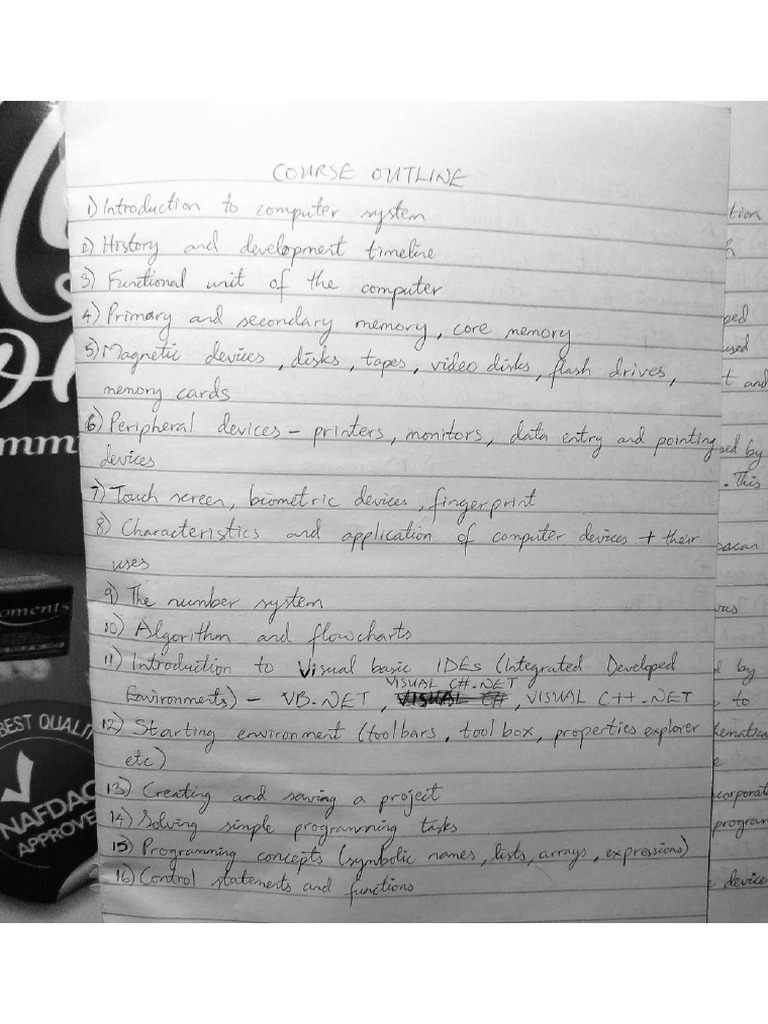 COURSE OUTLINE
1) Introduction to computer system
2) History and development timeline
3) Functional unit of the computer
4) Primary and secondary memory, core memory
5) Magnetic devices, disks, tapes, video disks, flash drives,
memory cards
6) Peripheral devices - printers, monitors, data entry and pointing
devices
7) Touch screen, biometric devices, fingerprint
8) Characteristics and application of computer devices + their
uses
9) The number system
10) Algorithm and flowcharts
11) Introduction to Visual basic IDEs (Integrated Developed
VISUAL C#.NET
Environments) - VB.NET, VISUAL C#, VISUAL C++.NET
12) Starting environment (toolbars, tool box, properties explorer
etc)
13) Creating and saving a project
14) Solving simple programming tasks
15) Programming concepts (symbolic names, lists, arrays, expressions)
16) Control statements and functions
tion
ped
used
t and
sed by
. This
was
d by
to
corporat
program
device
mm
oments
BEST QUALI
NAFDAC
APPROVE